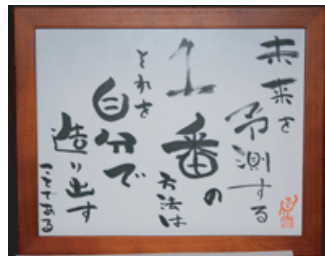 未来を
予測する
1番の
方法は
それを
自分で
造り出す
ことである